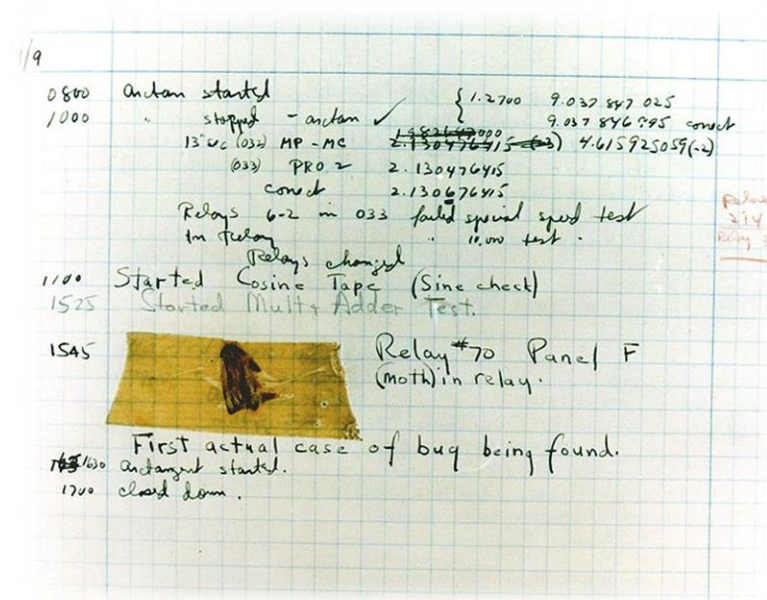 9/9
0800 arctan started { 1.2700 9.037 847 025
1000 " stopped - arctan ✓ 9.037 846 995 correct
13"uc (032) MP - MC 2.130476415 (-3) 4.615925059(-2)
(033) PRO 2 2.130476415
correct 2.130676415
Relays 6-2 in 033 failed special speed test
In Relay " 10.000 test .
Relays changed
1100 Started Cosine Tape (Sine check)
1525 Started Mult+ Adder Test.
1545 Relay #70 Panel F
(moth) in relay.
First actual case of bug being found.
1630 arctangent started.
1700 closed down .
Relay